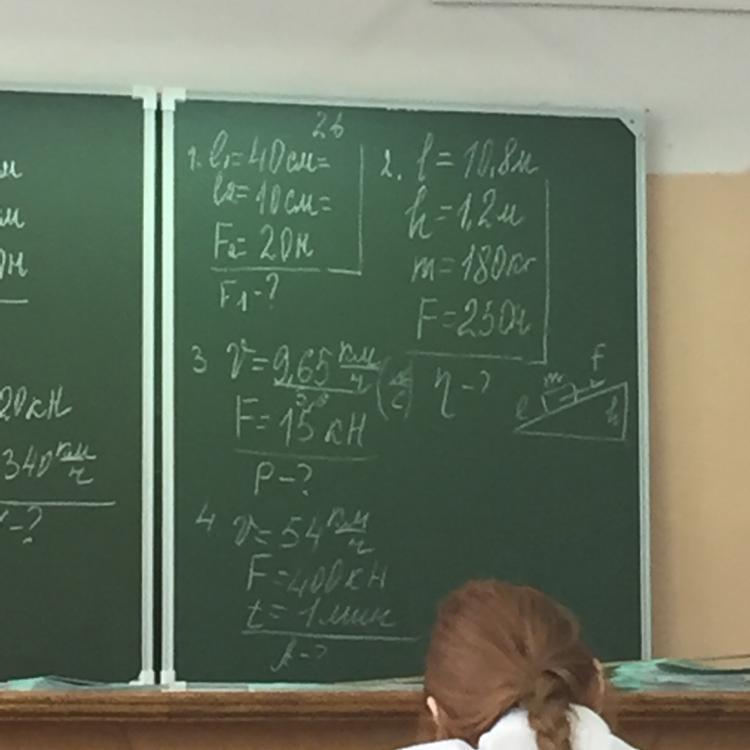 м
м
0н
20кН
340 км/ч
-?
2б
1. l₁=40см=
l₂=10см=
F₂=20н
F₁-?
2. l=10,8м
h=1,2м
m=180кг
F=250н
η-?
m F
l h
3 V=9,65 км/ч (м/с)
F=15кН
P-?
4 V=54 км/ч
F=400кН
t=1мин
A-?